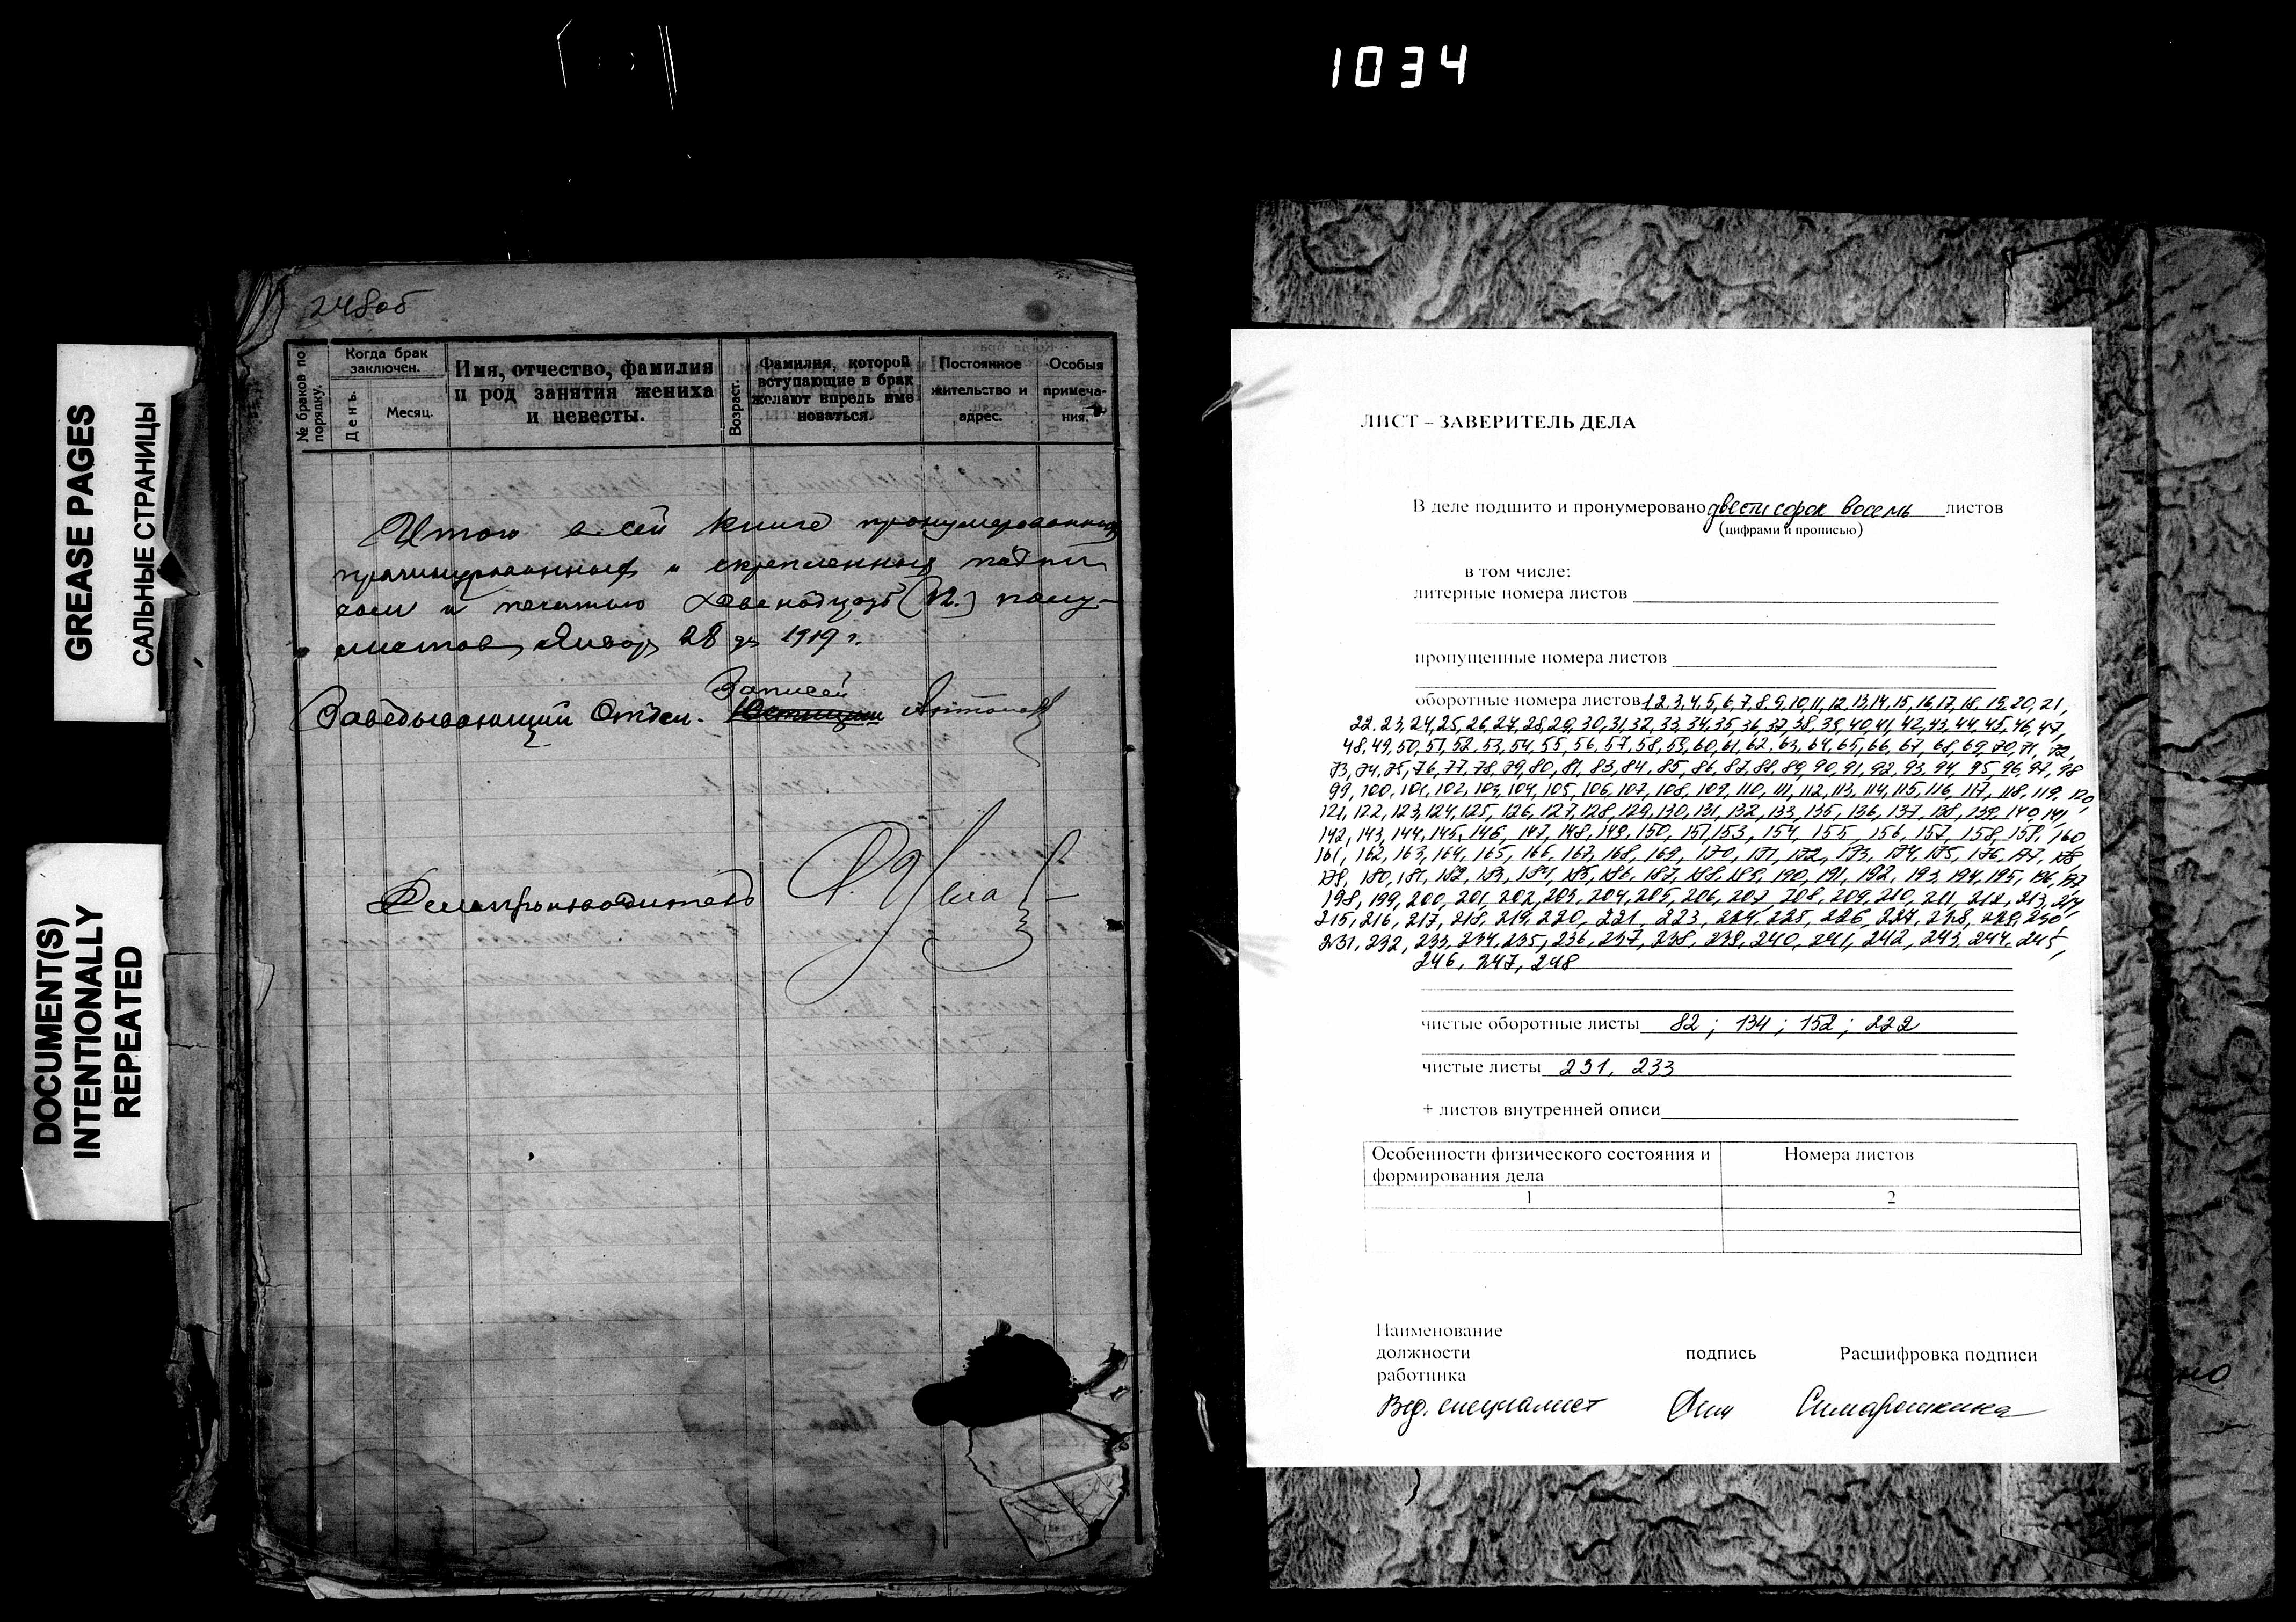 1034
GREASE PAGES
САЛЬНЫЕ СТРАНИЦЫ
DOCUMENT(S)
INTENTIONALLY
REPEATED
248об
№ браков по порядку.
Когда брак заключен.
День.
Месяц.
Имя, отчество, фамилия
и род занятия жениха
и невесты.
Возраст.
Фамилия, которой
вступающие в брак
желают впредь име
новаться.
Постоянное
жительство и
адрес.
Особыя
примеча-
ния.
Итого в сей книге пронумерованных
прошнурованных и скрепленных подпи
сью и печатью Двенадцать (12.) полу-
листов, Январ 28 дн 1919 г.
Записей
Заведывающий Отдел. Юстиции Антонов
Делопроизводитель
ЛИСТ – ЗАВЕРИТЕЛЬ ДЕЛА
В деле подшито и пронумеровано двести сорок восемь листов
(цифрами и прописью)
в том числе:
литерные номера листов
пропущенные номера листов
оборотные номера листов 1,2,3,4,5,6,7,8,9,10,11,12,13,14,15,16,17,18,19,20,21,
22,23,24,25,26,27,28,29,30,31,32,33,34,35,36,37,38,39,40,41,42,43,44,45,46,47,
48,49,50,51,52,53,54,55,56,57,58,59,60,61,62,63,64,65,66,67,68,69,70,71,72,
73,74,75,76,77,78,79,80,81,83,84,85,86,87,88,89,90,91,92,93,94,95,96,97,98
99,100,101,102,103,104,105,106,107,108,109,110,111,112,113,114,115,116,117,118,119,120,
121,122,123,124,125,126,127,128,129,130,131,132,133,135,136,137,138,139,140,141,
142,143,144,145,146,147,148,149,150,151,153,154,155,156,157,158,159,160
161,162,163,164,165,166,167,168,169,170,171,172,173,174,175,176,177,178,
179,180,181,182,183,184,185,186,187,188,189,190,191,192,193,194,195,196,197
198,199,200,201,202,203,204,205,206,207,208,209,210,211,212,213,214,
215,216,217,218,219,220,221,223,224,225,226,227,228,229,230,
231,232,233,234,235,236,237,238,239,240,241,242,243,244,245,
246,247,248
чистые оборотные листы 82; 134; 152; 222
чистые листы 231, 233
+ листов внутренней описи
Особенности физического состояния и
формирования дела
Номера листов
1
2
Наименование
должности
работника
подпись
Расшифровка подписи
Вед. специалист
Симарошкина